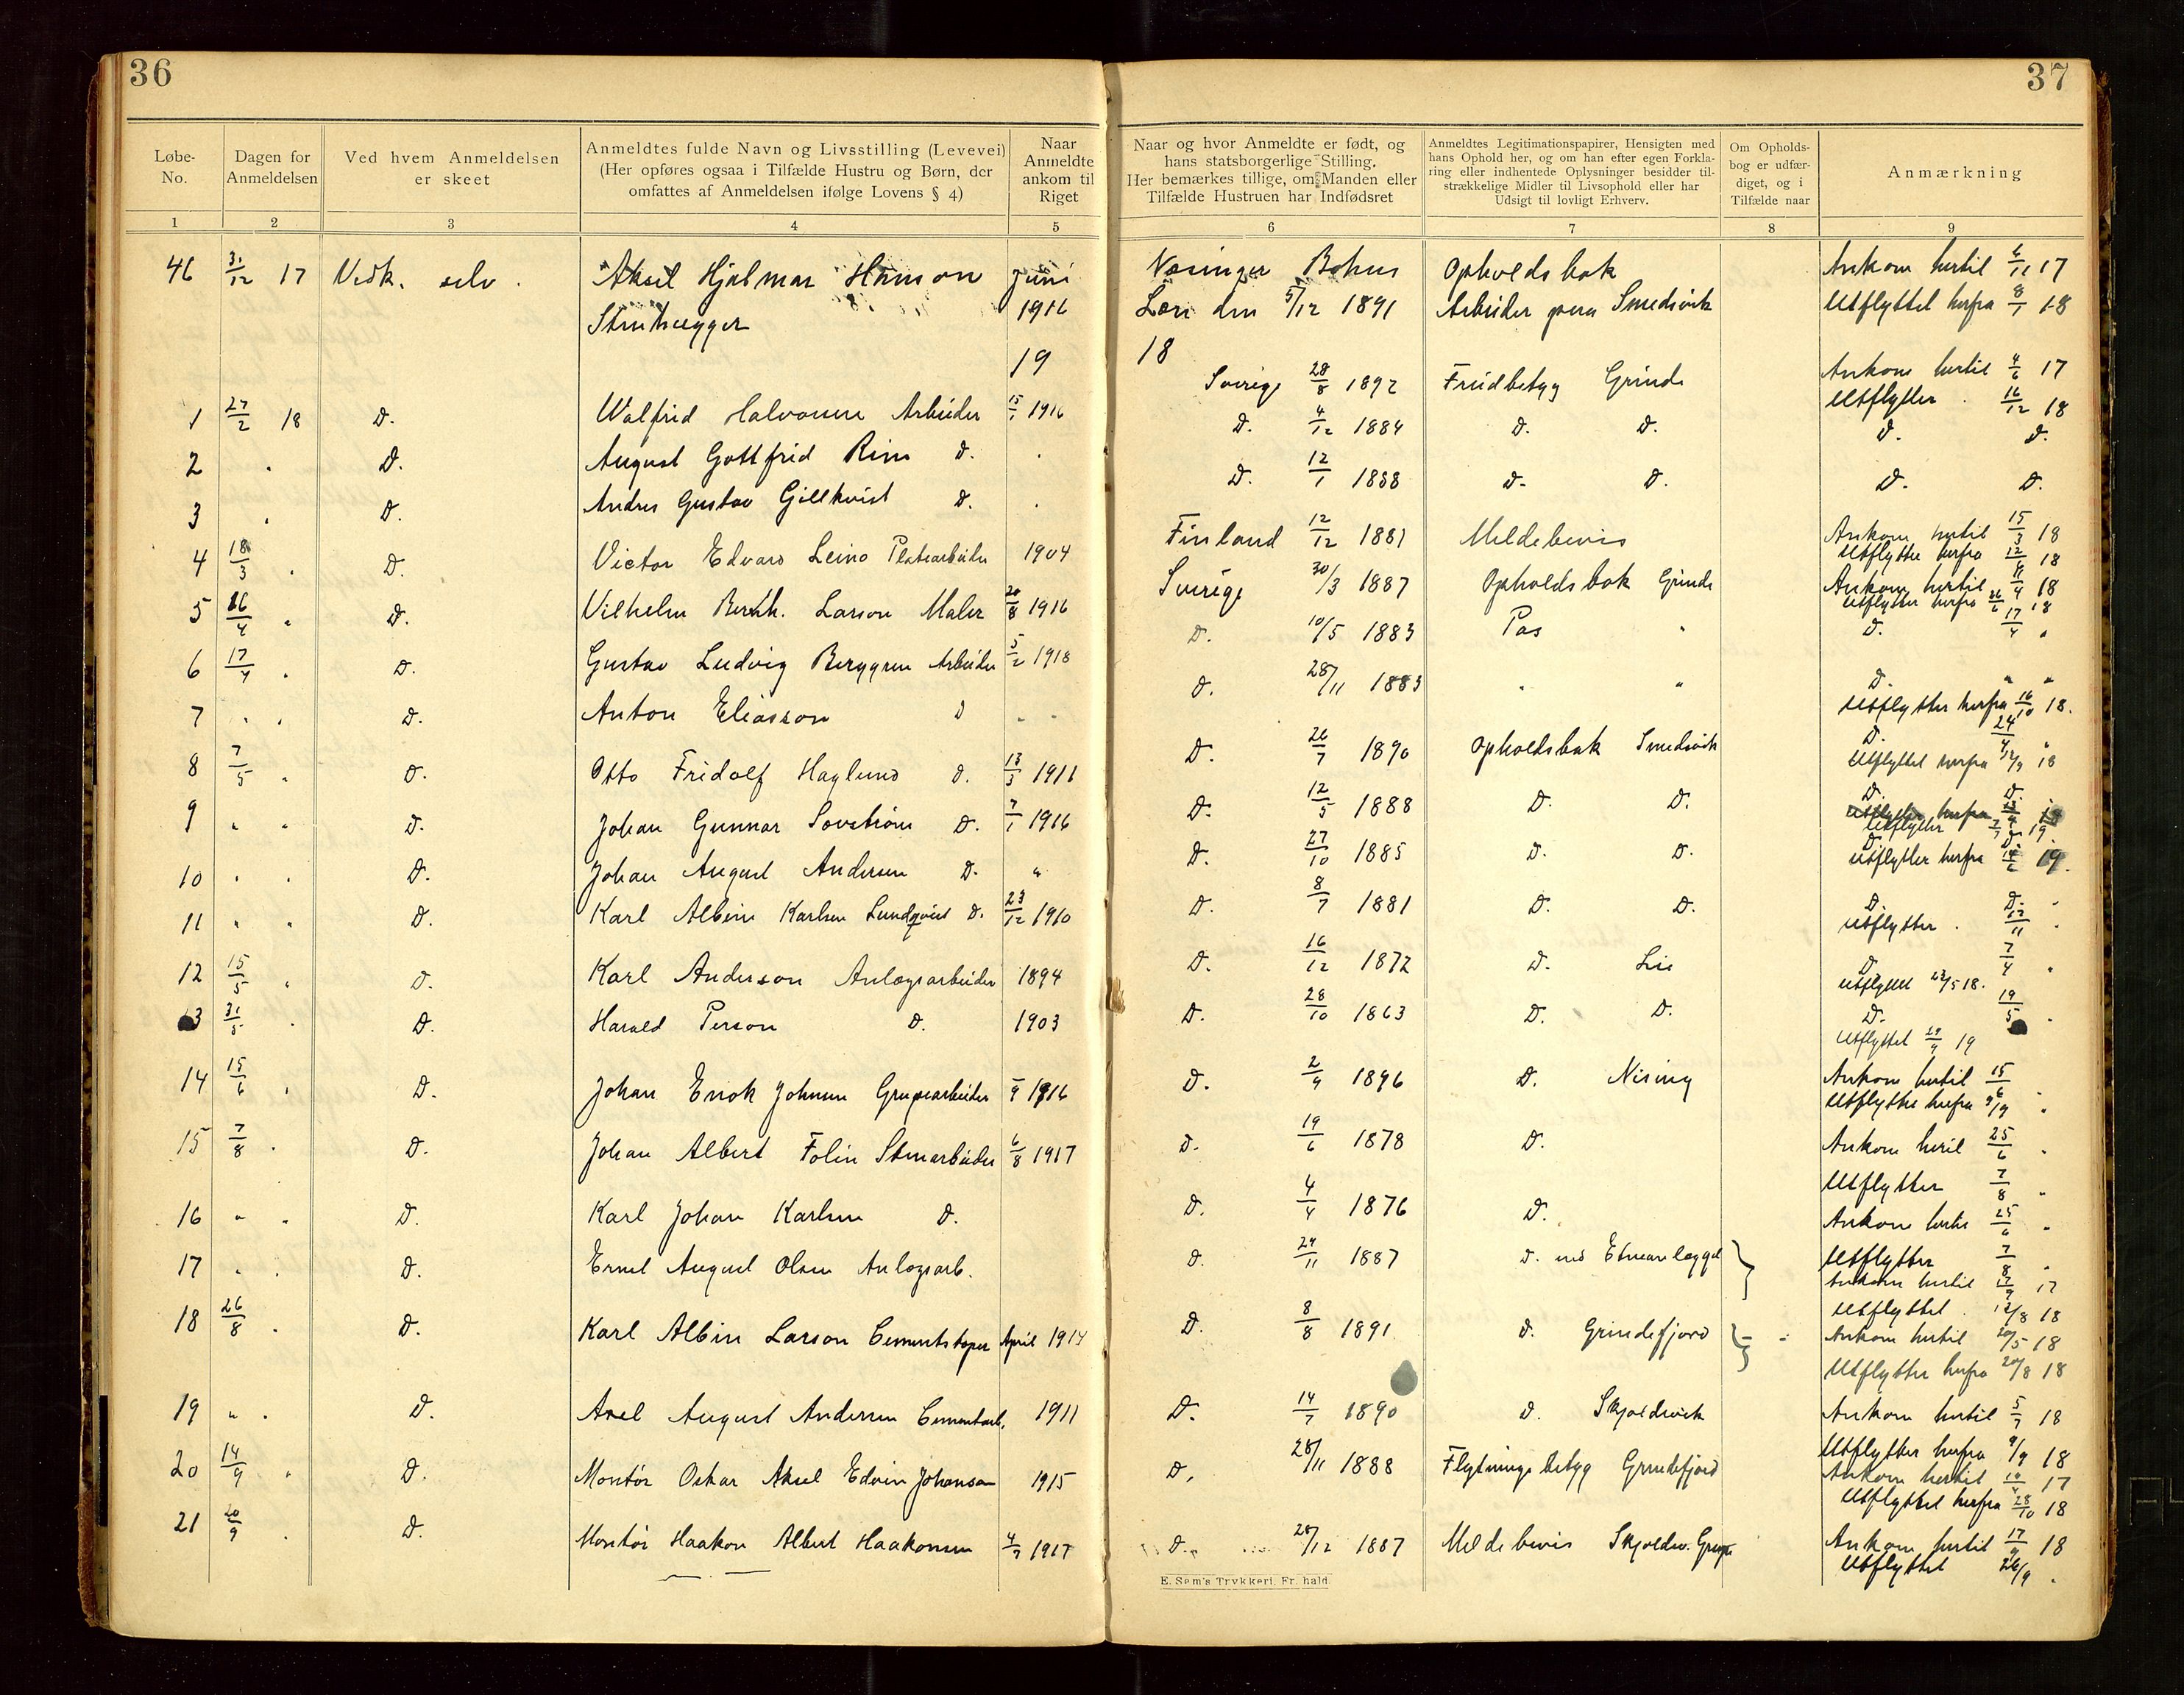 36
37
Løbe-No.
Dagen for Anmeldelsen
Ved hvem Anmeldelsen er skeet
Anmeldtes fulde Navn og Livsstilling (Levevei) (Her opføres ogsaa i Tilfælde Hustru og Børn, der omfattes af Anmeldelsen ifølge Lovens § 4)
Naar Anmeldte ankom til Riget
Naar og hvor Anmeldte er født, og hans statsborgerlige Stilling. Her bemærkes tillige, om Manden eller Tilfælde Hustruen har Indfødsret
Anmeldtes Legitimationspapirer, Hensigten med hans Ophold her, og om han efter egen Forklaring eller indhentede Oplysninger besidder tilstrækkelige Midler til Livsophold eller har Udsigt til lovligt Erhverv.
Om Opholdsbog er udfærdiget, og i Tilfælde naar
Anmærkning
1 2 3 4 5 6 7 8 9
46 31/12 17 Vedk. selv. Aksel Hjalmar Hanson Juni Bohus Opholdsbok Ankom hertil 6/11 17
Stenhugger 1916 Læn den 5/12 1891 Arbeider paa Smedsvik Utflyttet herfra 8/1 18
19 18
1 27/2 18 D. Walfrid Halvorsen Arbeider 15/1 1916 Sverige 28/8 1892 Grinde Ankom hertil 4/6 17
Utflytter . 16/12 18
2 . D. August Gottfrid Rim D. . D. 4/12 1884 D. D. D. D.
3 . D. Andres Gustav Gillkvist D. . D. 12/1 1888 D. D. D. D.
4 18/3 . D. Victor Edvard Leino 1904 Finland 12/12 1881 Meldebevis Ankom hertil 15/3 18
Utflytter herfra 18
5 16/4 " D. Vilhelm Bernh. Larson Maler 20/8 1916 Sverige 30/3 1887 Opholdsbok Grinde Ankom hertil 18
Utflytter herfra 18
6 17/4 . D. Gustav Ludvig Berggren Arbeider 5/2 1918 D. 10/5 1883 Pas " D. 17/4 "
7 . . D. Anton Eliasson D - - D. 28/11 1883 . " D. " "
Utflytter herfra 16/10 18.
8 7/5 " D. Otto Fridolf Haglund D. 13/3 1911 D. 26/7 1890 Opholdsbok Smedsvik D. 24/4 "
Utflyttet herfra 18
9 " " D. Johan Gunnar D. 7/1 1916 D. 12/5 1888 D. D. D. D.
Utflytter 19
10 . . D. Johan August Andersen D. " D. 27/10 1885 D. D. D.
Utflytter herfra 19.
11 " " D. Karl Albin Karlsen Lundqvist D. 23/12 1910 D. 8/7 1881 D. D. D. D.
Utflytter .
12 15/5 " D. Karl Anderson Anlægsarbeider 1894 D. 16/12 1872 D. Lie D. 7/4 "
Utflyttet 23/5 18.
13 31/5 . D. Harald Person D. 1903 D. 28/10 1863 D. D. D. 19/5 .
Utflyttet 19
14 15/6 . D. Johan Enok Johnsen Grupearbeider 1916 D. 2/9 1896 D. Ankom hertil 15/6
Utflytter herfra "
15 7/8 . D. Johan Albert Folin Stenarbeider 6/8 1917 D. 19/6 1878 D. Ankom hertil 25/6 "
Utflytter 7/8 "
16 " " D. Karl Johan Karlsen D. D. 4/4 1876 D. Ankom hertil 25/6 "
Utflytter 7/8 "
17 " . D. Ernst August Olsen Anlægsarb. D. 24/11 1887 D. Ankom hertil 17
Utflyttet . 12/8 18
18 26/8 . D. Karl Albin Larson Cementstøper April 1914 D. 8/8 1891 D. Grindefjord Ankom hertil 20/5 18
Utflytter herfra 20/8 18
19 " . D. Axel August Andersen Cementarb. 1911 D. 14/7 1890 D. Skjoldsvik Ankom hertil 5/7 18
Utflytter herfra 9/9 18
20 14/9 " D. Montør Oskar Aksel Edvin Johanson 1915 D. 28/11 1888 Flytningsbetyg Grindefjord Ankom hertil 17
Utflyttet herfra 28/10 18
21 20/9 . D. Montør Haakon Albert Haakonsen 1917 D. 28/12 1887 Meldebevis Ankom hertil 17/9 18
Utflyttet 26/9 .
E. Sem's Trykkeri, Fr.hald.